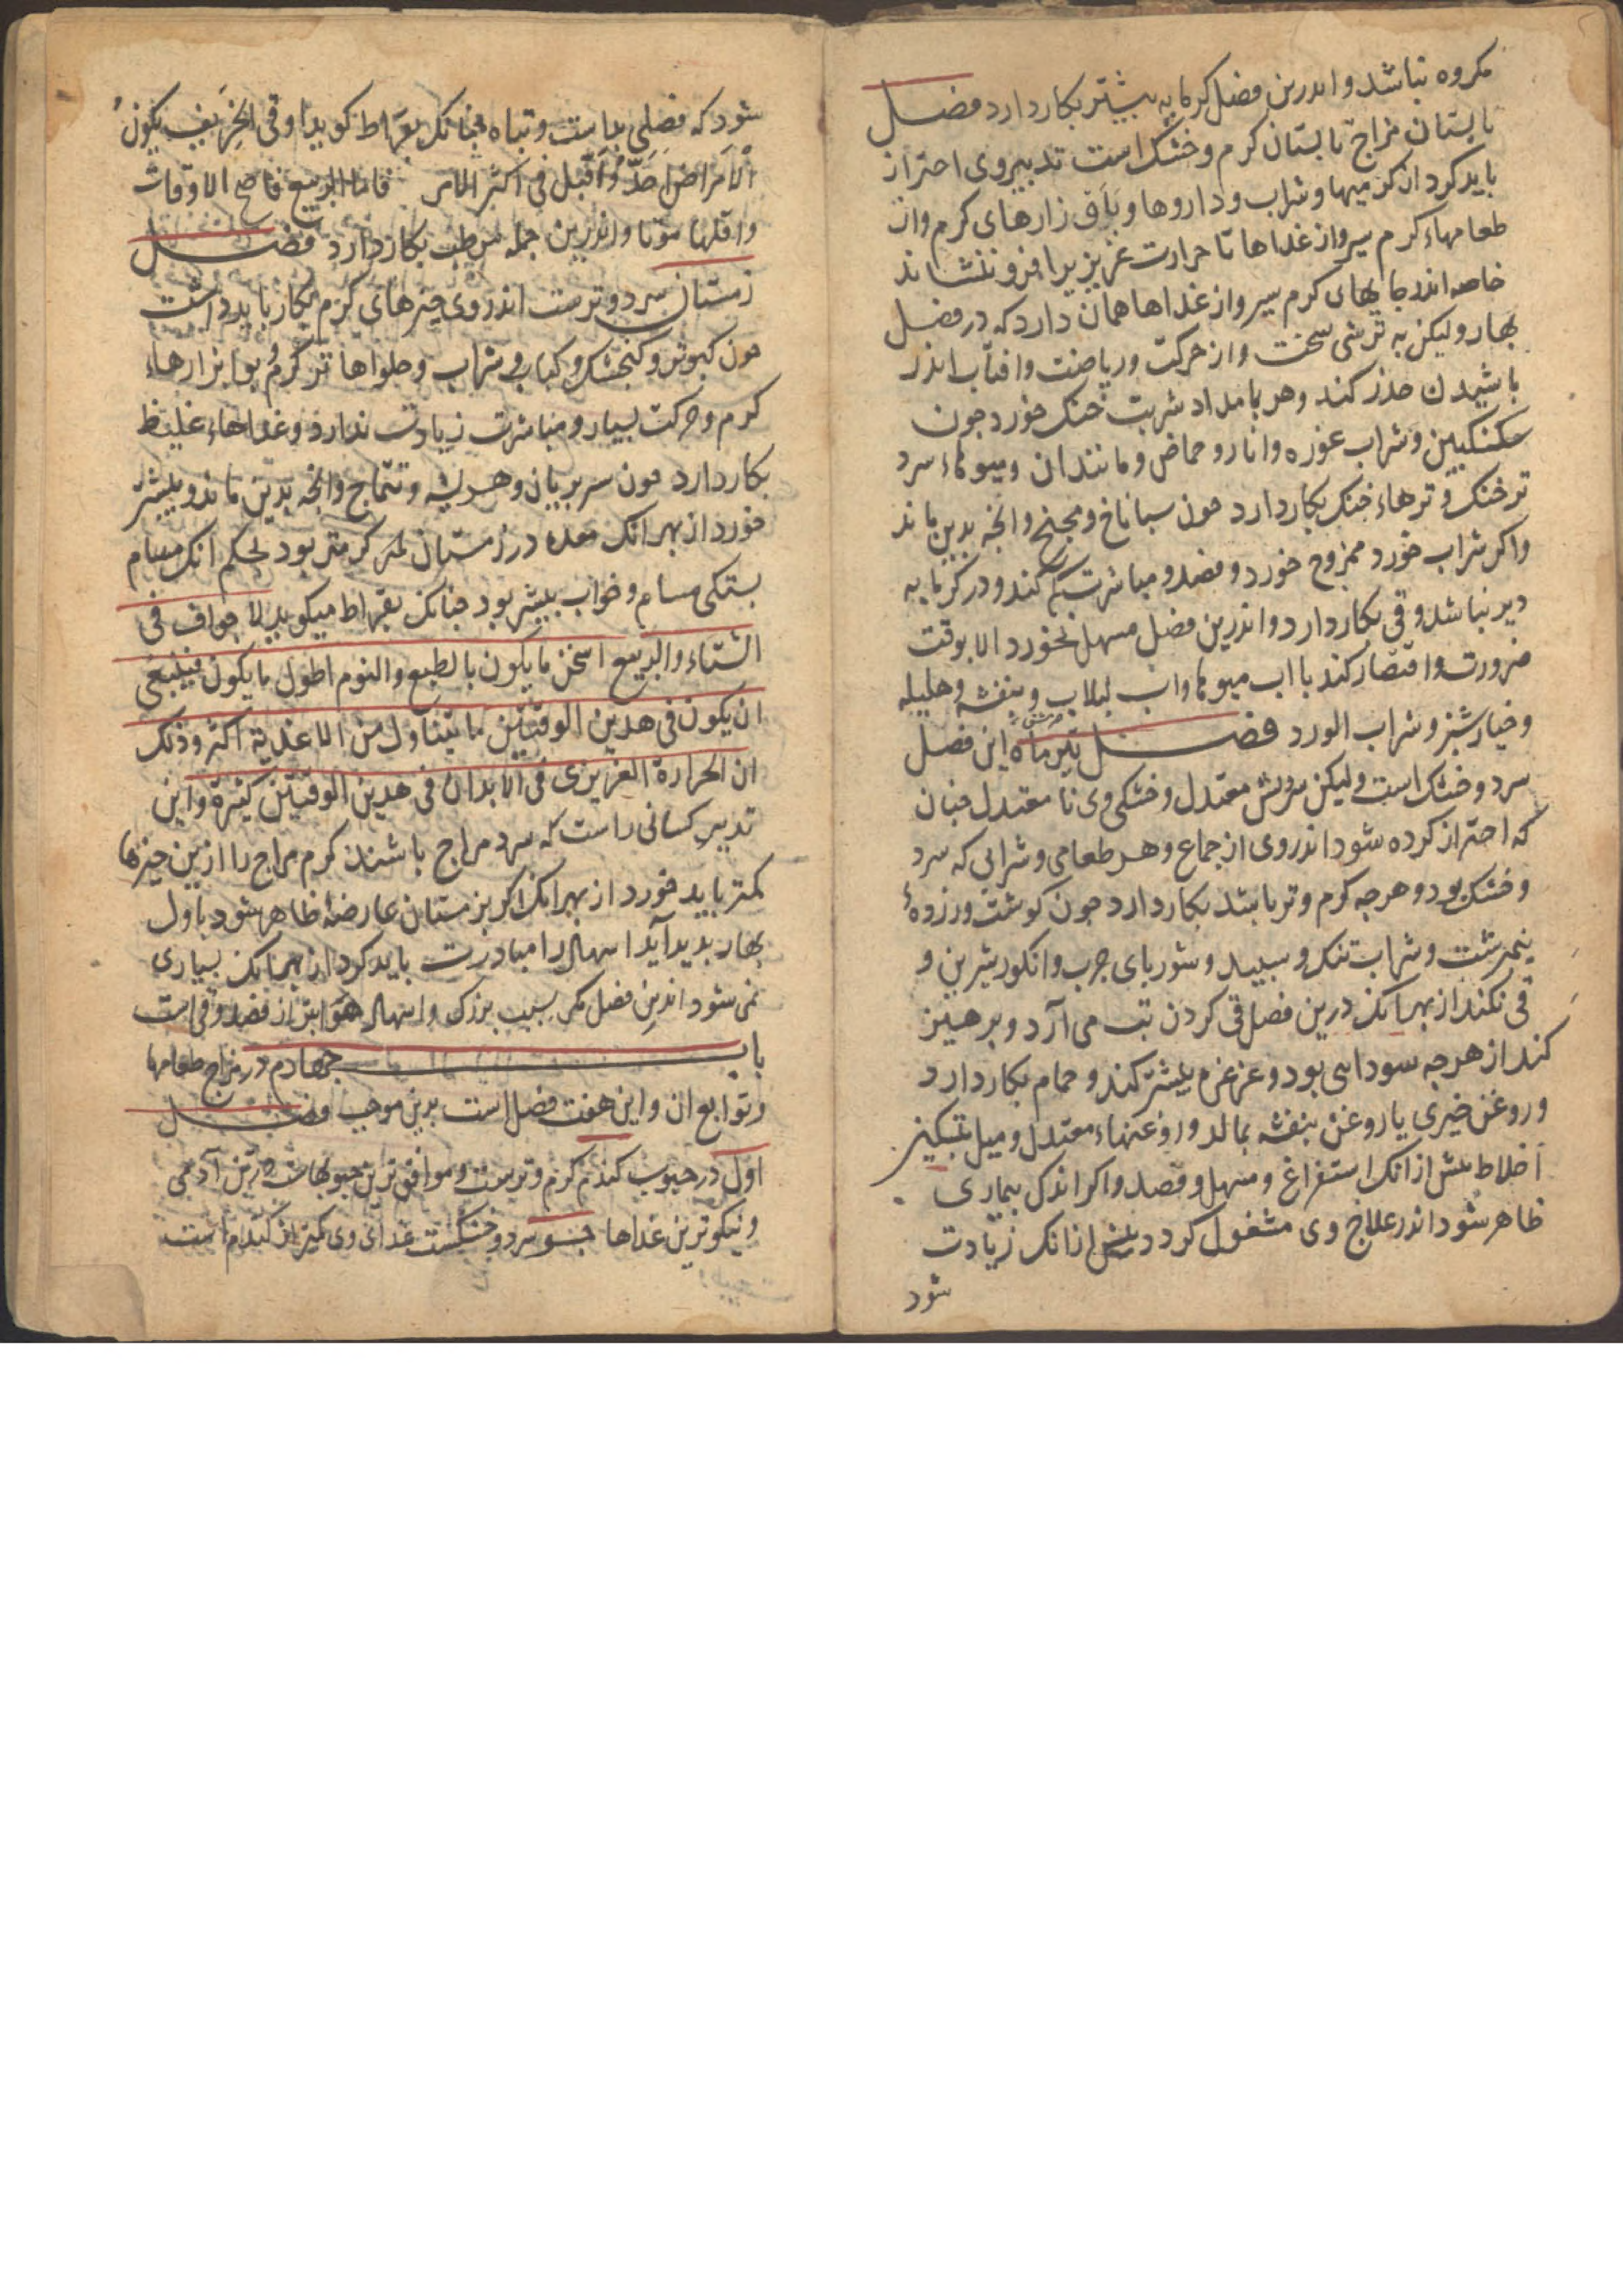 مکروه نباشد و اندرین فصل کرمابه بیشتر بکار دارد فصل
تابستان مزاج تابستان کرم و خشک است تدبیر وی احتراز
باید کرد از کرمیها و شراب و داروها و زارهای کرم و از
طعامهاء کرم سیر و از غداها تا حرارت غریزی را ننشاند
خاصه اندر جایهای کرم سیر و از غداها همان دارد که در فصل
بهار ولیکن به ترشی سخت و از حرکت و ریاضت و افتاب اندر
باشیدن حذر کند و هر بامداد شربت خنک خورد جون
سکنکبین و شراب غوره و انار و حماض و مانند ان و میوهاء سرد
تر خنک و ترهاء خنک بکار دارد جون سباناخ و وانجه بدین ماند
واکر شراب خورد ممزوج خورد و فصد و مباشرت کم کند و در کرمابه
دیر نباشد وقی بکار دارد و اندرین فصل مسهل نخورد الا بوقت
ضرورت و اقتصار کند باب میوها واب لبلاب و بنفشه و هلیله
و خیارشنبر و شراب الورد فصل تیرماه این فصل
سرد و خشک است ولیکن سردیش معتدل و خشکی وی نا معتدل جنان
که احتراز کرده شود اندر وی از جماع و هر طعامی و شرابی که سرد
و خشک بود و هرجه کرم و تر باشد بکار دارد جون کوشت و زرده
نیمرشت و شراب تنک و سبید و شوربای جرب و انکور شیرین و
قی نکند از بهر انک درین فصل قی کردن تب می آرد و برهیز
کند از هرجه سودایی بود و بیشتر کند و حمام بکار دارد
و روغن خیری یا روغن بنفشه بمالد و روغنهاء معتدل و میل بتسکین
اخلاط بیش از انک استفراغ و مسهل و فصد و اکر اندک بیماری
ظاهر شود اندر علاج وی مشغول کردد بیش از انک زیادت
شود
شود که فصلی بداست و تباه جنانک بقراط کوید وفی الخریف یکون
الامراض احد واقتل فی اکثر الامر فاما الربیع فاصح الاوقات
واقلها موتا و اندرین جمله مرطب بکار دارد فصل
زمستان سرد و ترست اندر وی جیزهای کرم بکار باید داشت
جون کبوتر و کنجشک و کباب و شراب و حلواها تر کرم و ابزارهاء
کرم و حرکت بسیار و مباشرت زیادت ندارد و غداهاء غلیظ
بکار دارد جون سر بریان و هریسه و تتماج وانجه بدین ماند و بیشتر
خورد از بهر انک معده در زمستان کرمتر بود بحکم انک مسام
بستکی مسام و خواب بیشتر بود جنانک بقراط میکوید الاجواف فی
الشتاء والربیع اسخن ما یکون بالطبع والنوم اطول ما یکون فینبغی
ان یکون فی هدین الوقتین ما یتناول من الاغدیة اکثر وذلک
ان الحرارة الغریزی فی الابدان فی هدین الوقتین کثیرة و این
تدبیر کسانی راست که سرد مزاج باشند کرم مزاج را ازین جیزها
کمتر باید خورد از بهر انک اکر بزمستان عارضه ظاهر شود باول
بهار بدید آید اسهال را مبادرت باید کرد از بهر انک بسیاری
نمی شود اندرین فصل مکر بسبب بزرک و اسهال از فصد وقی است
باب جهارم در مزاج طعامها
و توابع ان و این هفت فصل است بدین موجب فصل
اول در حبوب کندم کرم و ترست و موافق ترین حبوبهاست آدمی
و نیکوترین غداها جو سرد و خشکست غدای وی کمتر از کندم است